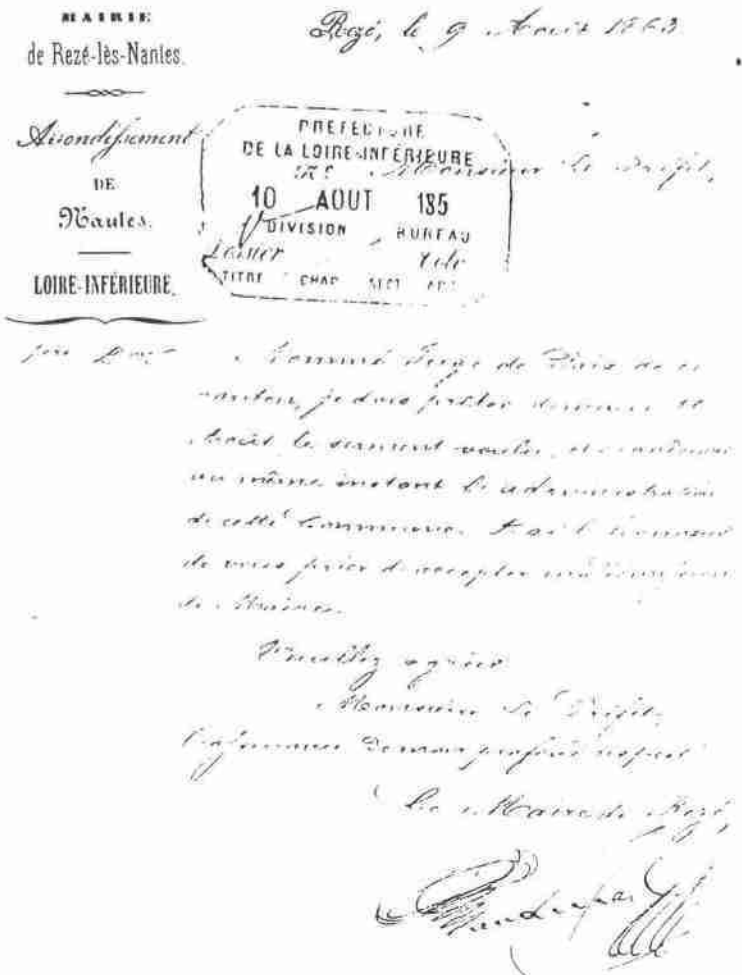 MAIRIE
de Rezé-lès-Nantes.
Arrondissement
DE
Nantes.
LOIRE-INFÉRIEURE.
Rezé, le 9 Août 1863.
PRÉFECTURE
DE LA LOIRE-INFÉRIEURE
Monsieur Le Préfet,
10 AOUT 185
DIVISION BUREAU
TITRE CHAP SECT ART
Nommé Juge de Paix de ce
canton, je dois prêter
le serment voulu, et
au même instant l'administration
de cette Commune. J'ai l'honneur
de vous prier d'accepter ma démission
de Maire.
Veuillez agréer
Monsieur Le Préfet,
l'assurance de mon profond respect
Le Maire de Rezé,